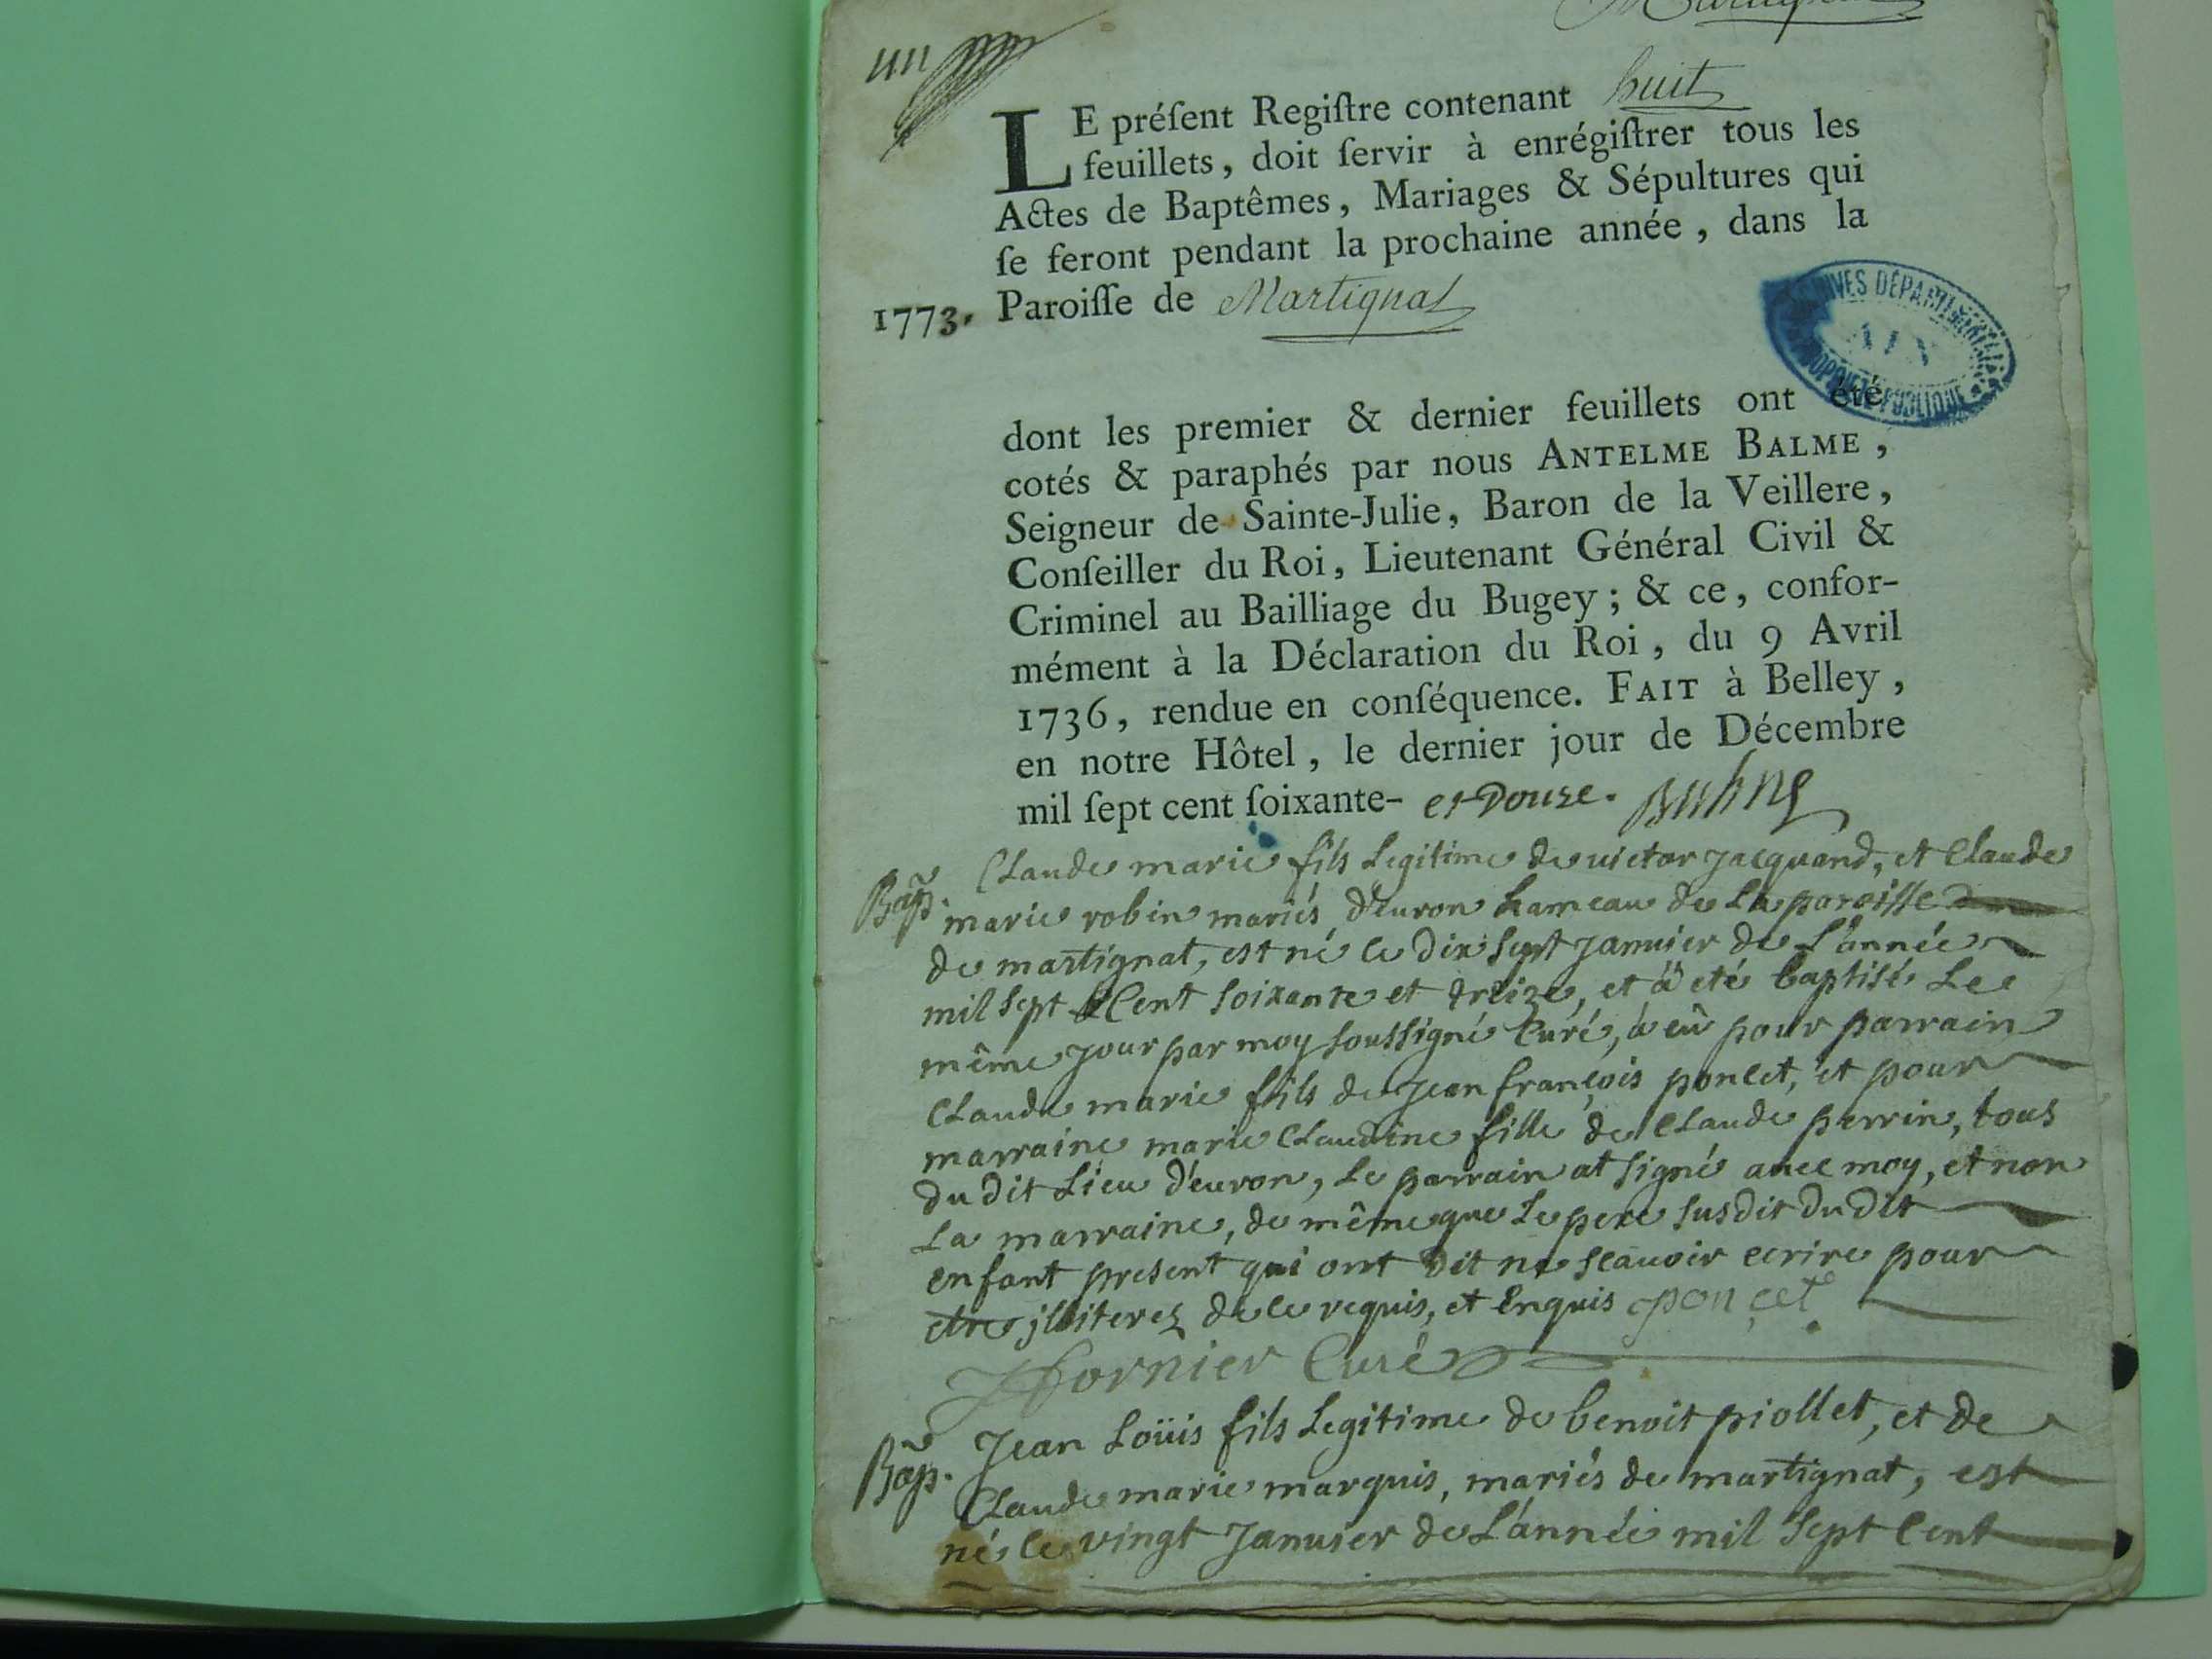 LE préſent Regiſtre contenant huit
feuillets, doit ſervir à enrégiſtrer tous les
Actes de Baptêmes, Mariages & Sépultures qui
ſe feront pendant la prochaine année, dans la
1773. Paroiſſe de Martignat
dont les premier & dernier feuillets ont été
cotés & paraphés par nous ANTELME BALME,
Seigneur de Sainte-Julie, Baron de la Veillere,
Conſeiller du Roi, Lieutenant Général Civil &
Criminel au Bailliage du Bugey; & ce, confor-
mément à la Déclaration du Roi, du 9 Avril
1736, rendue en conſéquence. FAIT à Belley,
en notre Hôtel, le dernier jour de Décembre
mil ſept cent ſoixante- et Douze.
Bap. Claude marie fils Legitime de victor jacquand, et Claude
marie robin mariés d'evron hameau de La paroisse
de martignat, est né le dix sept janvier de L'année
mil sept Cent soixante et treize, et à eté baptisé Le
même jour par moy soussigné Curé, à eû pour parrain
Claude marie fils de jean françois poncet, et pour
marraine marie Claudine fille de Claude perrin, tous
du dit Lieu d'evron, Le parrain at signé avec moy, et non
La marraine, de même que Le pere susdit du dit
enfant present qui ont dit ne sçavoir ecrire pour
etre jlliterez de ce requis, et enquis poncet
Fornier Curé
Bap. Jean Loüis fils Legitime de benoit piollet, et de
Claude marie marquis, mariés de martignat, est
né le vingt Janvier de L'année mil sept Cent